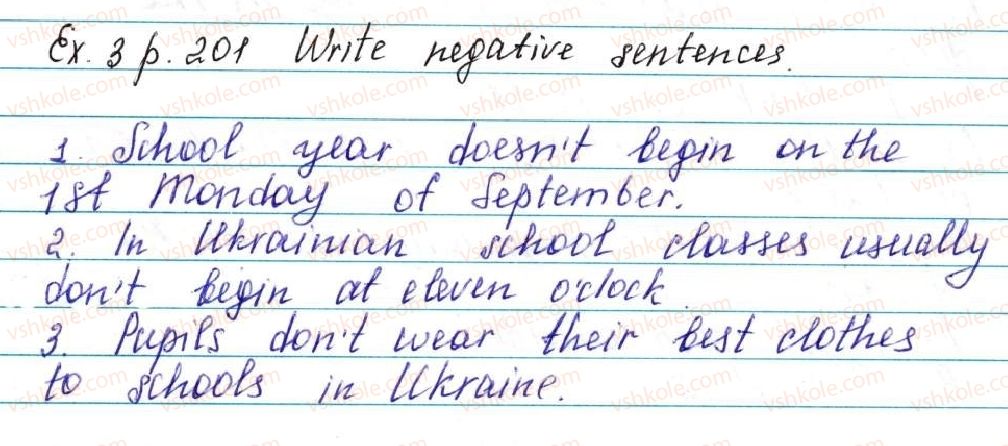 Ex. 3 p. 201 Write negative sentences.
1. School year doesn't begin on the
1st Monday of September.
2. In Ukrainian school classes usually
don't begin at eleven o'clock
3. Pupils don't wear their best clothes
to schools in Ukraine.